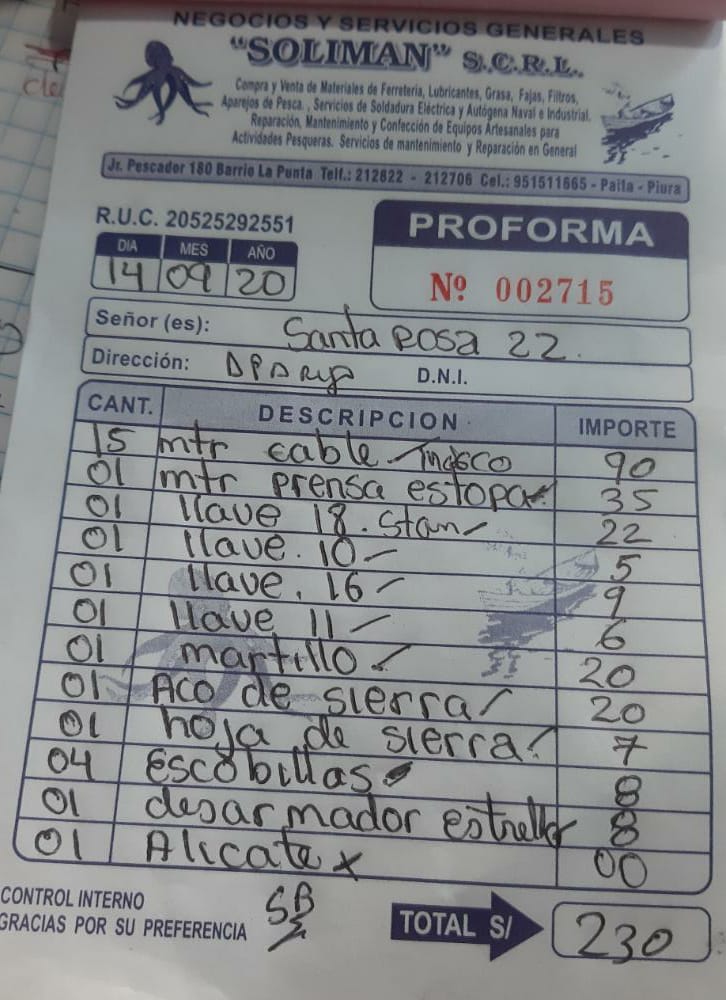 NEGOCIOS Y SERVICIOS GENERALES
"SOLIMAN" S.C.R.L.
Compra y Venta de Materiales de Ferreteria, Lubricantes, Grasa, Fajas, Filtros,
Aparejos de Pesca. , Servicios de Soldadura Eléctrica y Autógena Naval e Industrial.
Reparación, Mantenimiento y Confección de Equipos Artesanales para
Actividades Pesqueras. Servicios de mantenimiento y Reparación en General
Jr. Pescador 180 Barrio La Punta Telf.: 212622 - 212706 Cel.: 951511665 - Paita - Piura
R.U.C. 20525292551
PROFORMA
DIA MES AÑO
14 09 20
Nº 002715
Señor (es): Santa Rosa 22.
Dirección: D.N.I.
CANT. DESCRIPCION IMPORTE
15 mtr cable 90
01 mtr prensa estopa 35
01 llave 18. Stan 22
01 llave. 10 5
01 llave. 16 9
01 llave 11 6
01 martillo 20
01 Aco de sierra 20
01 hoja de sierra 7
04 escobillas 8
01 desarmador estrella 8
01 Alicate x 00
CONTROL INTERNO
GRACIAS POR SU PREFERENCIA
TOTAL S/ 230